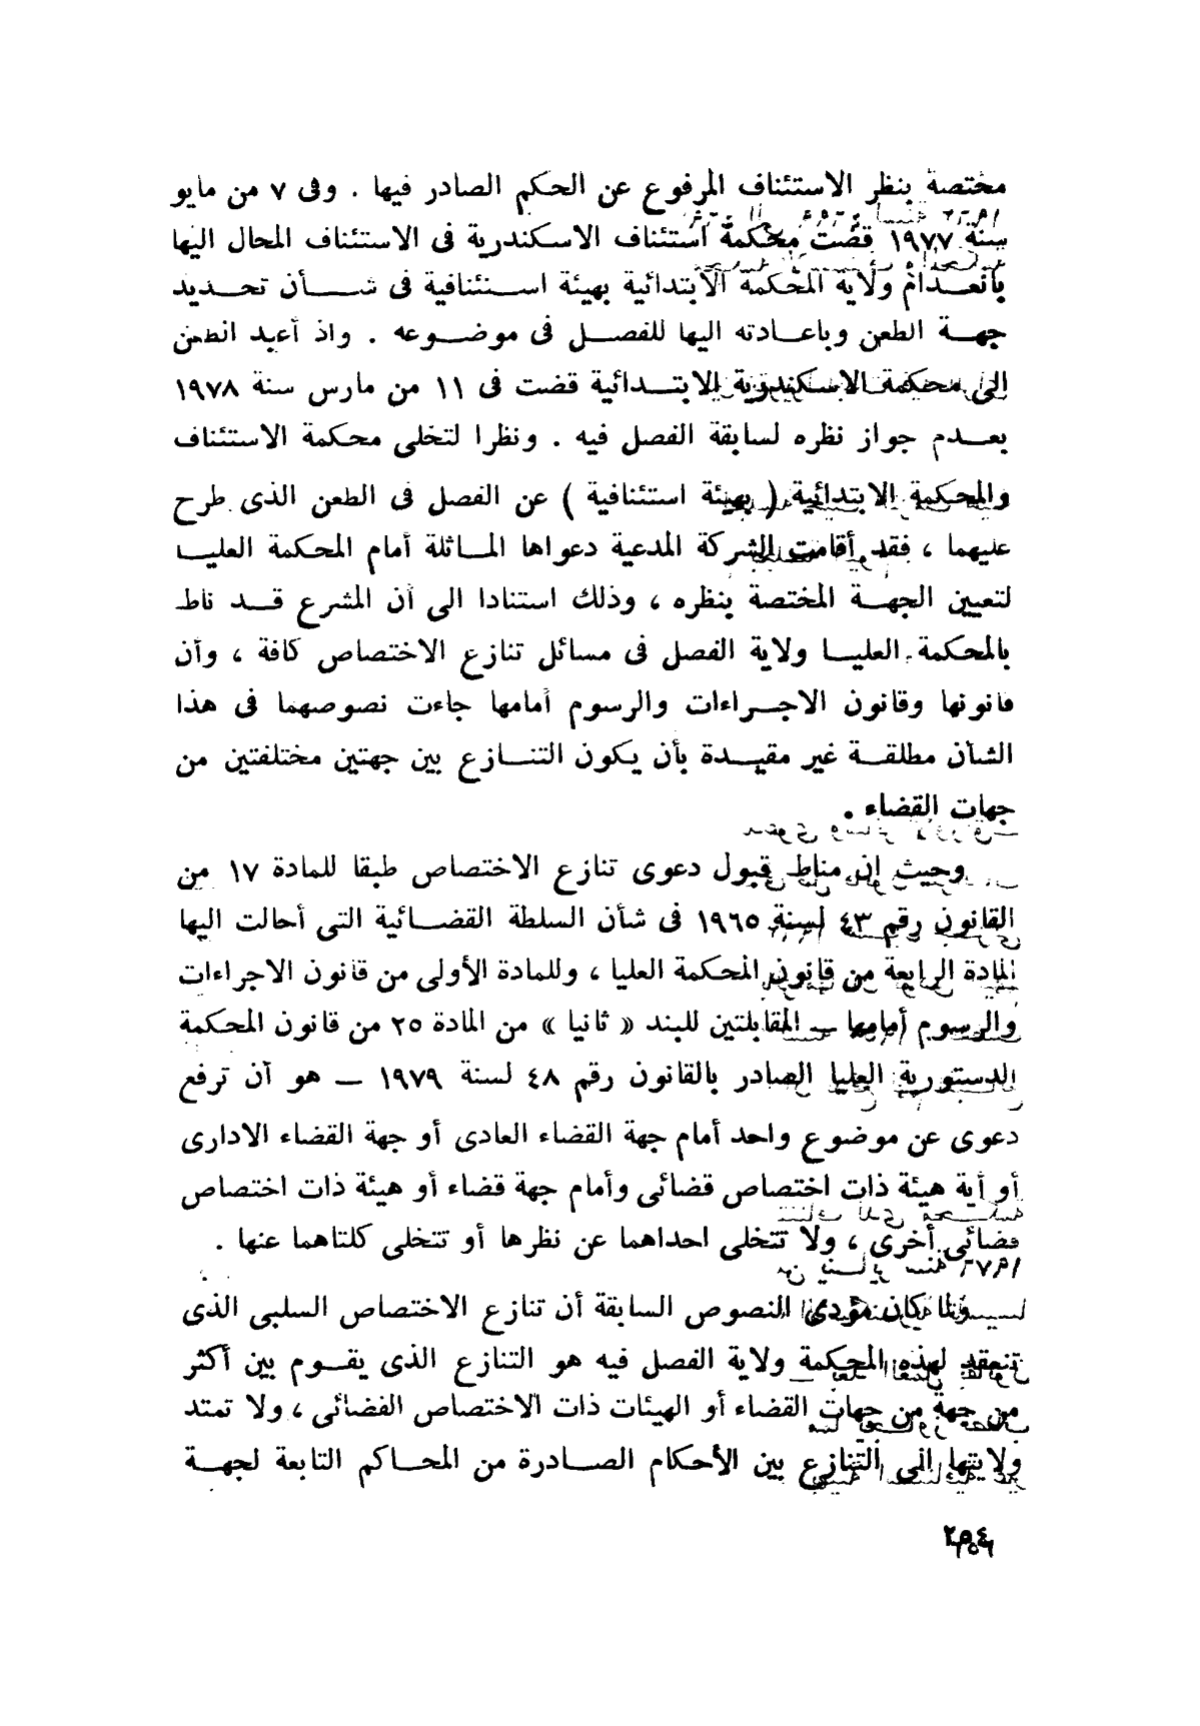 مختصة بنظر الاستئناف المرفوع عن الحكم الصادر فيها . وفى ٧ من مايو
سنة ١٩٧٧ قضت محكمة استئناف الاسكندرية فى الاستئناف المحال اليها
بانعدام ولاية المحكمة الابتدائية بهيئة استئنافية فى شأن تحديد
جهة الطعن وباعادته اليها للفصل فى موضوعه . واذ أعيد الطعن
الى محكمة الاسكندرية الابتدائية قضت فى ١١ من مارس سنة ١٩٧٨
بعدم جواز نظره لسابقة الفصل فيه . ونظرا لتخلى محكمة الاستئناف
والمحكمة الابتدائية ( بهيئة استئنافية ) عن الفصل فى الطعن الذى طرح
عليهما ، فقد أقامت الشركة المدعية دعواها الماثلة أمام المحكمة العليا
لتعيين الجهة المختصة بنظره ، وذلك استنادا الى أن المشرع قد ناط
بالمحكمة العليا ولاية الفصل فى مسائل تنازع الاختصاص كافة ، وأن
قانونها وقانون الاجراءات والرسوم أمامها جاءت نصوصهما فى هذا
الشأن مطلقة غير مقيدة بأن يكون التنازع بين جهتين مختلفتين من
جهات القضاء .
وحيث ان مناط قبول دعوى تنازع الاختصاص طبقا للمادة ١٧ من
القانون رقم ٤٣ لسنة ١٩٦٥ فى شأن السلطة القضائية التى أحالت اليها
المادة الرابعة من قانون المحكمة العليا ، وللمادة الأولى من قانون الاجراءات
والرسوم أمامها — المقابلتين للبند « ثانيا » من المادة ٢٥ من قانون المحكمة
الدستورية العليا الصادر بالقانون رقم ٤٨ لسنة ١٩٧٩ — هو أن ترفع
دعوى عن موضوع واحد أمام جهة القضاء العادى أو جهة القضاء الادارى
أو أية هيئة ذات اختصاص قضائى وأمام جهة قضاء أو هيئة ذات اختصاص
قضائى أخرى ، ولا تتخلى احداهما عن نظرها أو تتخلى كلتاهما عنها .
ولما كان مؤدى النصوص السابقة أن تنازع الاختصاص السلبى الذى
تنعقد لهذه المحكمة ولاية الفصل فيه هو التنازع الذى يقوم بين أكثر
من جهة من جهات القضاء أو الهيئات ذات الاختصاص القضائى ، ولا تمتد
ولايتها الى التنازع بين الأحكام الصادرة من المحاكم التابعة لجهة